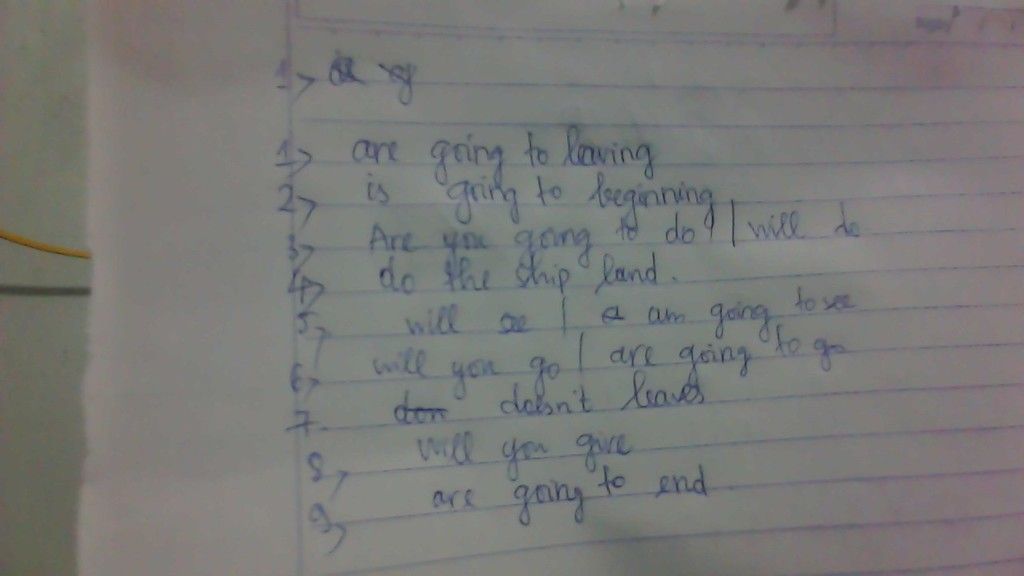 1,
1, are going to leaving
2, is going to beginning
3, Are you going to do? / will do
4, do the ship land.
5, will see / am going to see
6, will you go / are going to go
7. doesn't leaves
8, will you give
9, are going to end